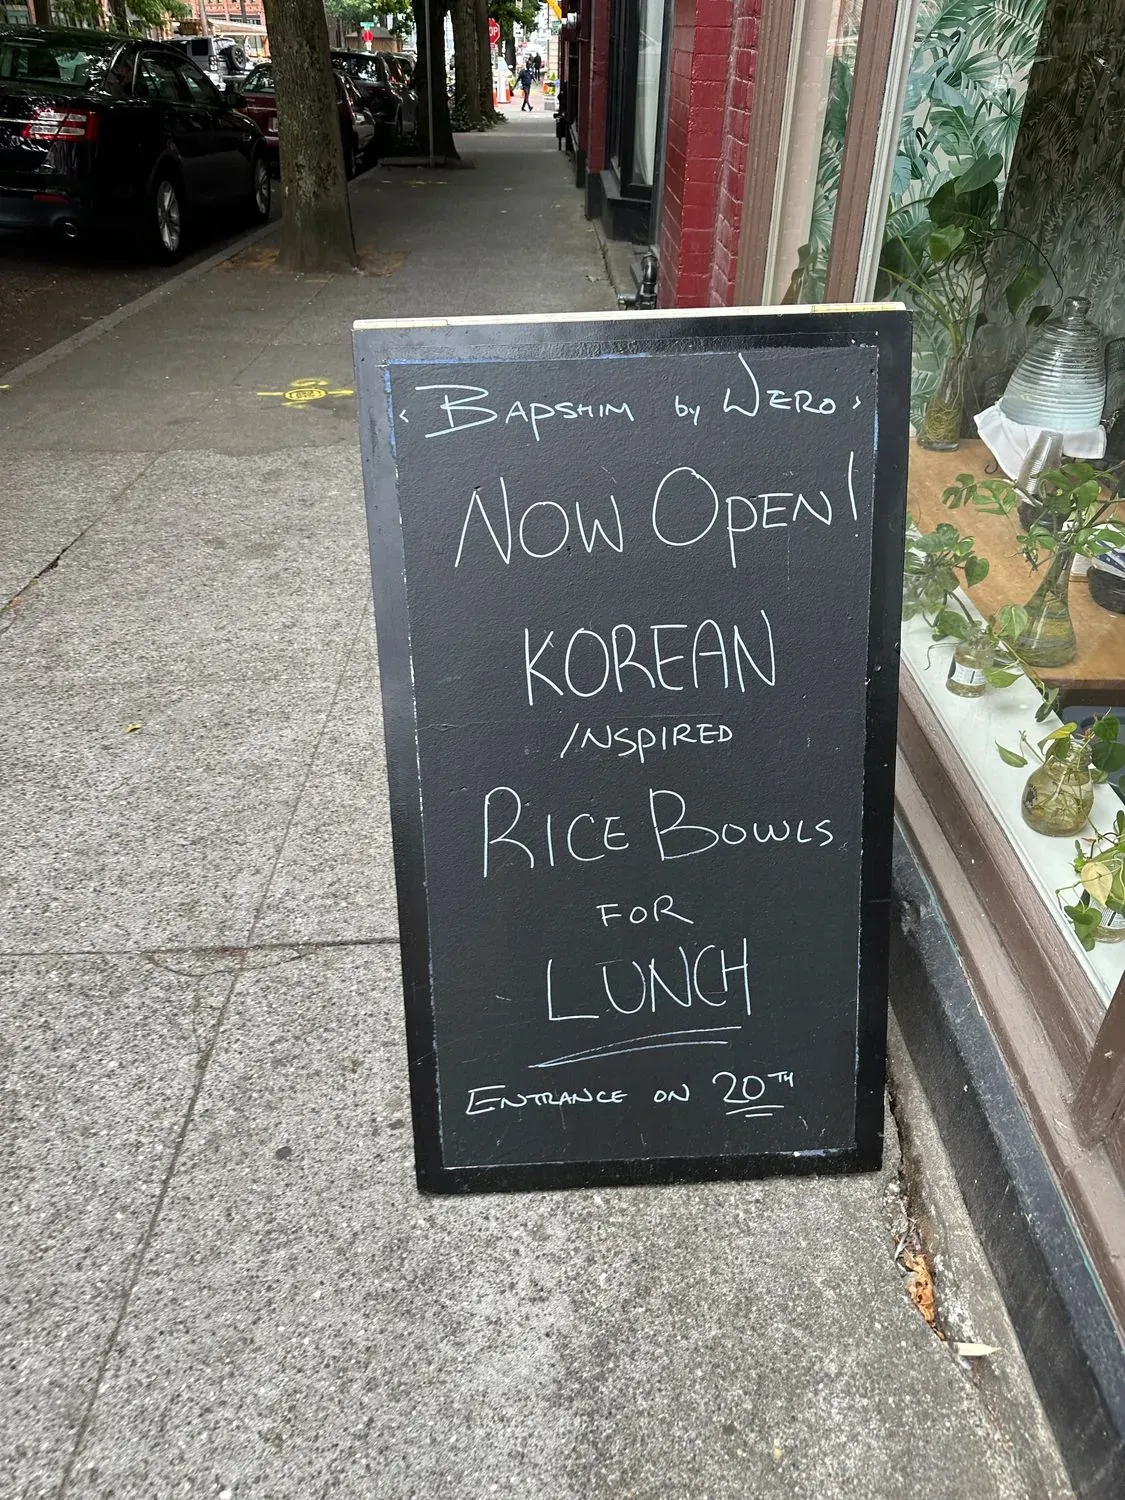 ‹ BAPSHIM by WERO ›
NOW OPEN!
KOREAN
INSPIRED
RICE BOWLS
FOR
LUNCH
ENTRANCE ON 20TH